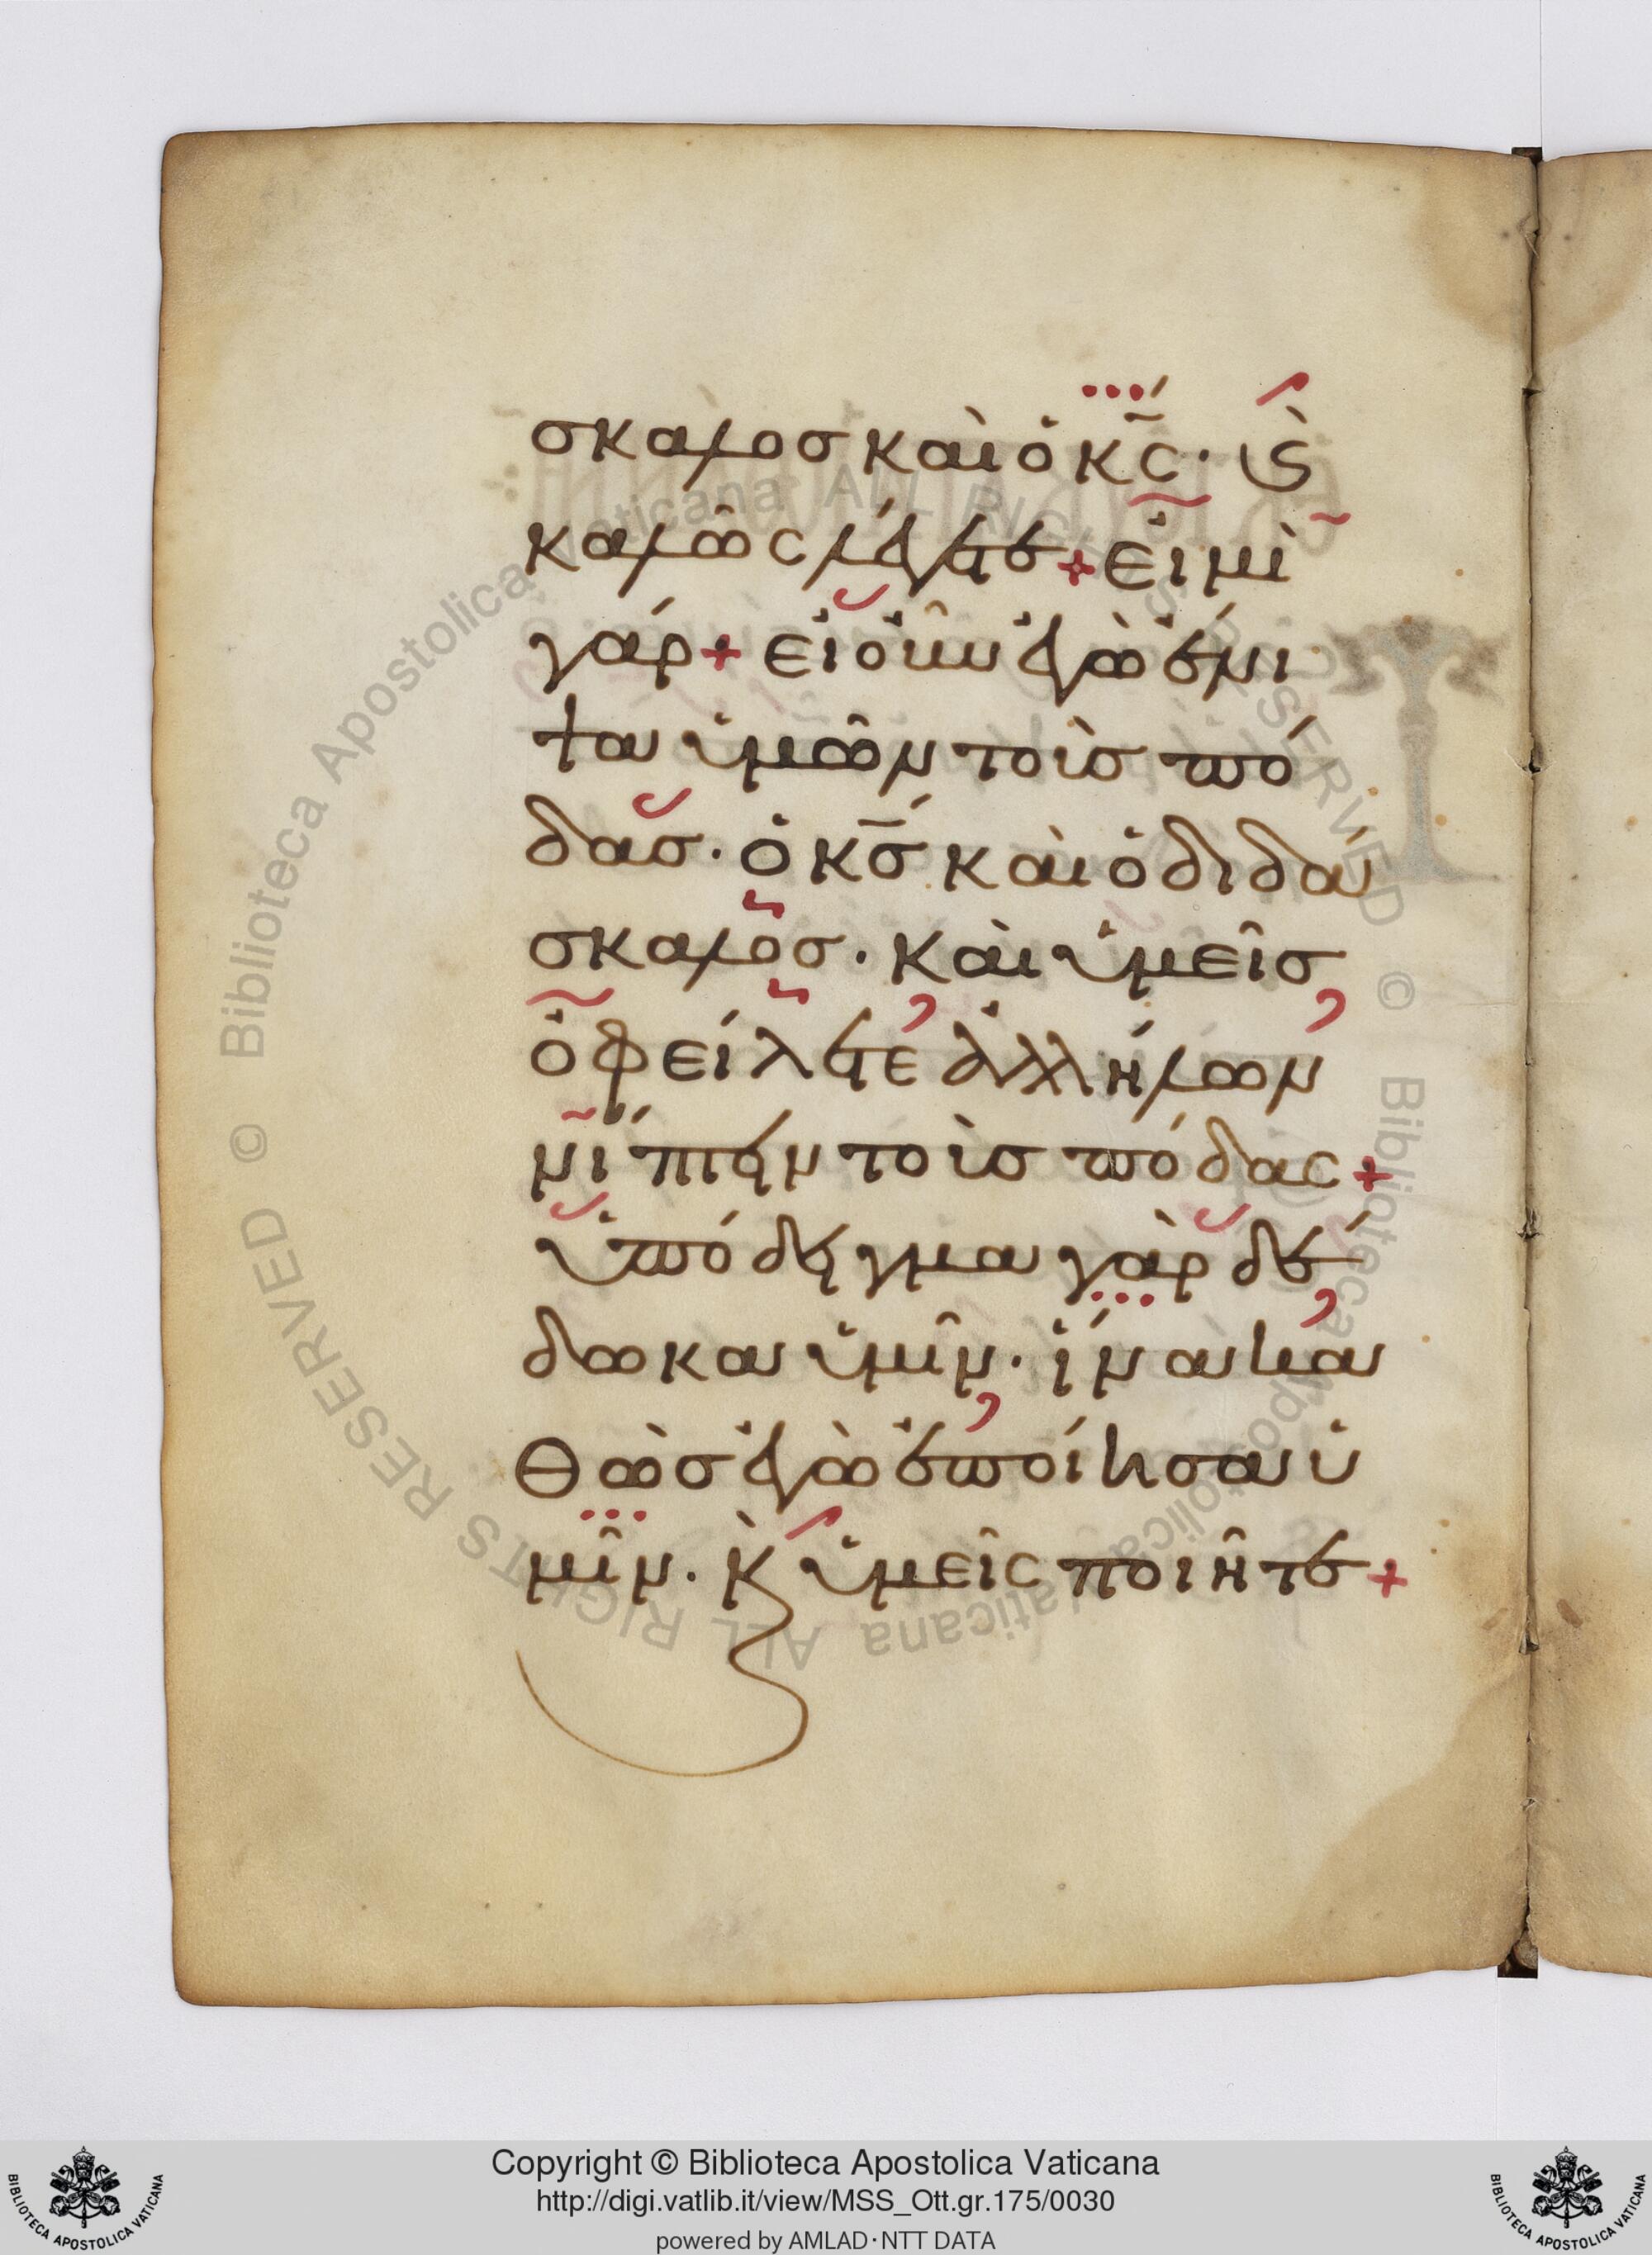 σκαλοσ καὶ ὁ κ̅ς́· ϗ̀
καλῶς λέγετε + εἰμὶ
γάρ + εἰ οὖν ἐγὼ ἔνι
ψα ὑμῶν τοὺσ πό
δασ· ὁ κ̅σ́ καὶ ὁ διδά
σκαλοσ· καὶ ὑμεῖσ
ὀφείλετε ἀλλήλων
νίπτειν τοὺσ πόδας +
ὑπόδειγμα γὰρ δέ
δωκα ὑμῖν· ἵνα κα
θὼσ ἐγὼ ἐποίησα ὑ
μῖν· κ̀ ὑμεῖς ποιῆτε +
Copyright © Biblioteca Apostolica Vaticana
http://digi.vatlib.it/view/MSS_Ott.gr.175/0030
powered by AMLAD·NTT DATA
BIBLIOTECA APOSTOLICA VATICANA
BIBLIOTECA APOSTOLICA VATICANA
© Biblioteca Apostolica Vaticana ALL RIGHTS RESERVED © Biblioteca Apostolica Vaticana ALL RIGHTS RESERVED